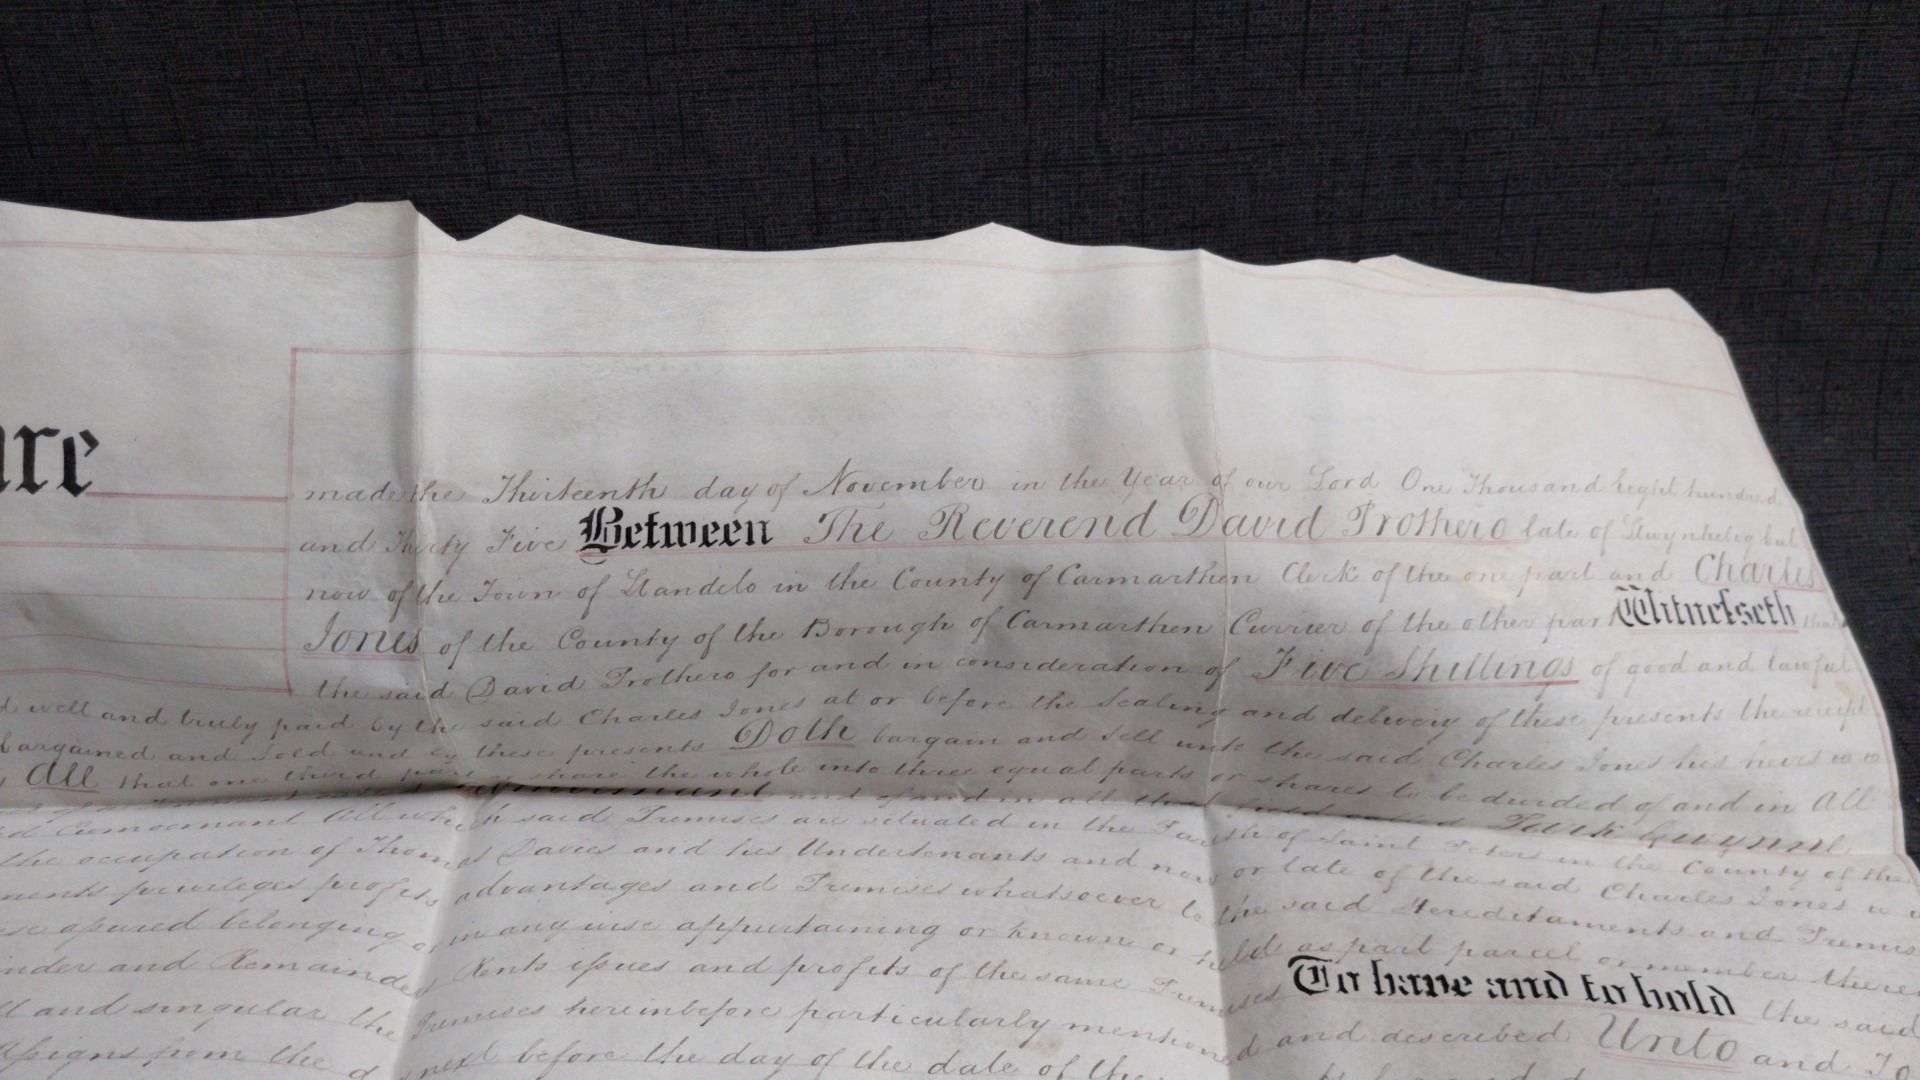 made the Thirteenth day of November in the Year of our Lord One Thousand Eight hundred
and Thirty Five Between The Reverend David Prothero late of but
now of the Town of Llandilo in the County of Carmarthen Clerk of the one part and Charles
Jones of the County of the Borough of Carmarthen Currier of the other par Witnesseth that
the said David Prothero for and in consideration of Five Shillings of good and lawful
well and truly paid by the said Charles Jones at or before the Sealing and delivery of these presents the receipt
bargained and Sold and by these presents Doth bargain and Sell unto the said Charles Jones his heirs
All that one third part or share the whole into three equal parts or shares to be divided of and in All
and of and in all that field called Park Gwynne
All which said Premises are situated in the Parish of Saint Peters in the County of the
the occupation of Thomas Davies and his Undertenants and now or late of the said Charles Jones
privileges profits advantages and Premises whatsoever to the said Hereditaments and
belonging or in any wise appurtaining or known or held as part parcel or member
and Remainder Rents issues and profits of the same Premises To have and to hold the said
and singular the Premises hereinbefore particularly mentioned and described Unto and
from the next before the day of the date of